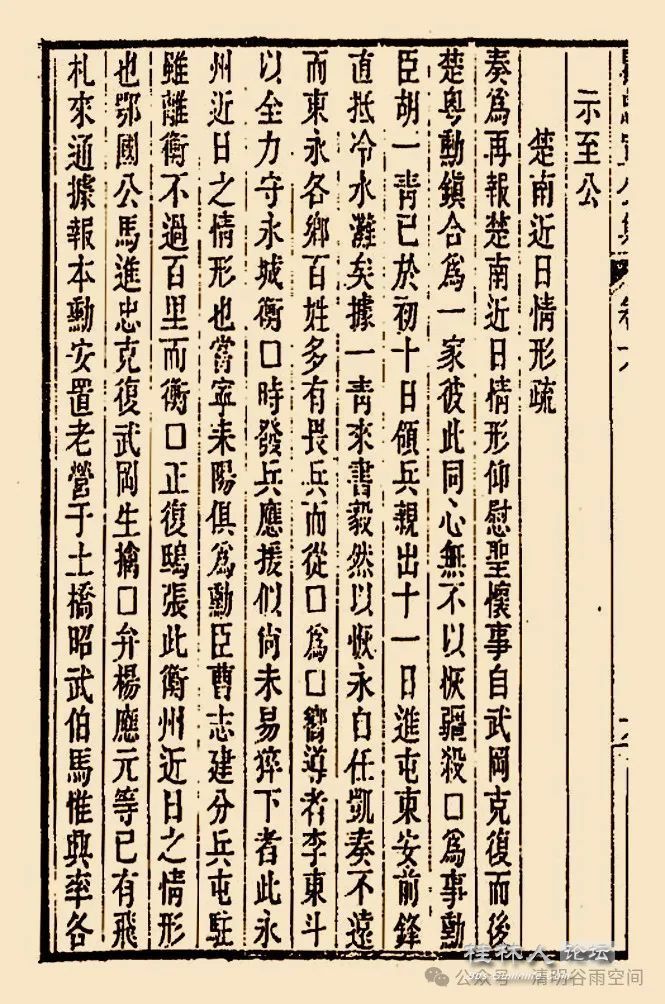 示至公
楚南近日情形疏
奏爲再報楚南近日情形仰慰聖懷事自武岡克復而後
楚粵勳鎮合爲一家彼此同心無不以恢疆殺口爲事勳
臣胡一青已於初十日領兵親出十一日進屯東安前鋒
直抵冷水灘矣據一青來書毅然以恢永自任凱奏不遠
而東永各鄉百姓多有畏兵而從口爲口嚮導者李東斗
以全力守永城衡口時發兵應援似尚未易猝下者此永
州近日之情形也當寧耒陽俱爲勳臣曹志建分兵屯駐
雖離衡不過百里而衡口正復鴟張此衡州近日之情形
也鄂國公馬進忠克復武岡生擒口弁楊應元等已有飛
札來通據報本勳安置老營于土橋昭武伯馬惟興率各
桂林人论坛
公众号·清明谷雨空间